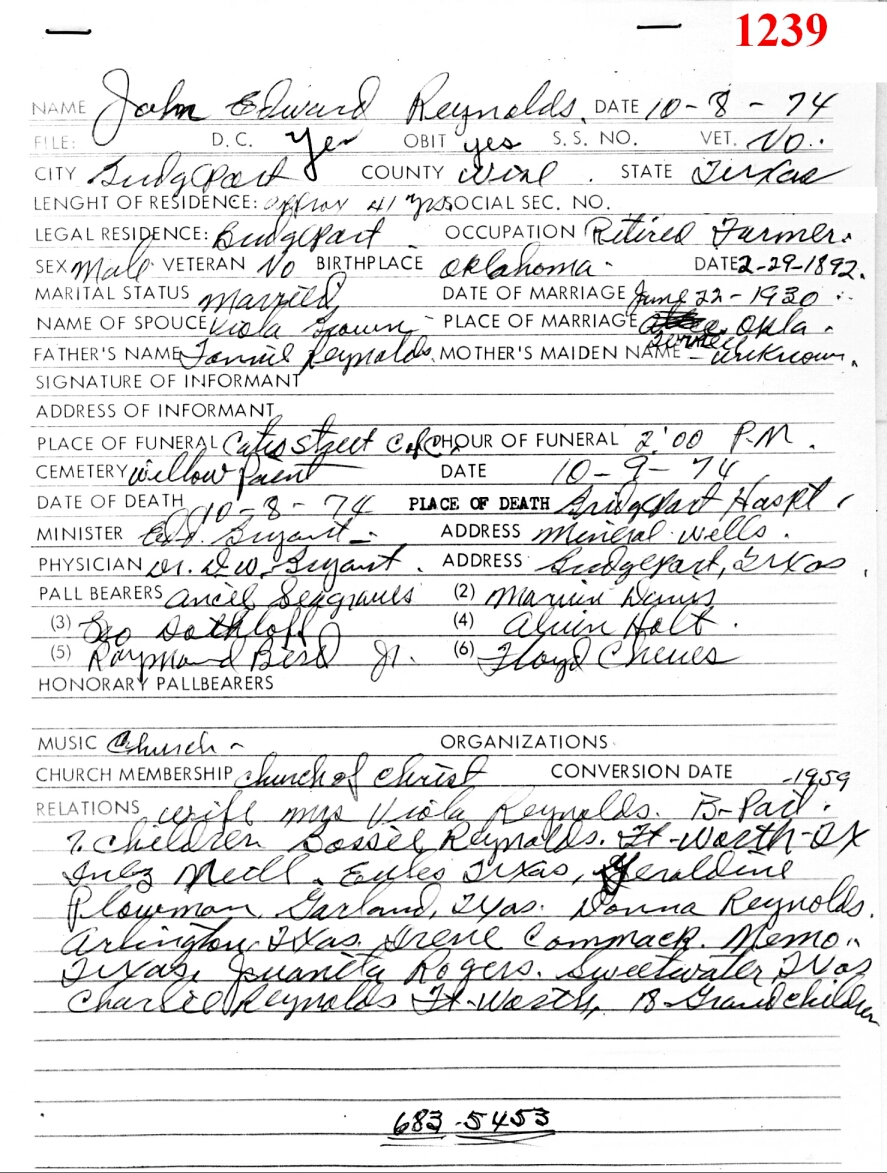 1239
NAME John Edward Reynolds. DATE 10-8-74
FILE: D.C. Yes OBIT yes S.S. NO. VET. No.
CITY Bridgeport COUNTY Wise. STATE Texas
LENGHT OF RESIDENCE: approx 41 yrs. SOCIAL SEC. NO.
LEGAL RESIDENCE: Bridgeport OCCUPATION Retired Farmer.
SEX Male VETERAN No BIRTHPLACE Oklahoma - DATE 2-29-1892.
MARITAL STATUS Married DATE OF MARRIAGE June 22-1930
NAME OF SPOUCE Viola Brown - PLACE OF MARRIAGE Okla.
FATHER'S NAME Reynolds. MOTHER'S MAIDEN NAME - unknown.
SIGNATURE OF INFORMANT
ADDRESS OF INFORMANT
PLACE OF FUNERAL Cates Street C of C HOUR OF FUNERAL 2:00 P.M.
CEMETERY Willow Point DATE 10-9-74
DATE OF DEATH 10-8-74 PLACE OF DEATH Bridgeport Hospt.
MINISTER Bryant - ADDRESS Mineral Wells.
PHYSICIAN Dr. D.W. Bryant. ADDRESS Bridgeport, Texas
PALL BEARERS Ancel Seagraves (2) Marvin Davis
(3) Geo Dothloff (4) Alvin Holt.
(5) Raymond Bird Jr. (6) Floyd Cheves
HONORARY PALLBEARERS
MUSIC Church - ORGANIZATIONS
CHURCH MEMBERSHIP Church of Christ CONVERSION DATE -1959
RELATIONS wife Mrs Viola Reynolds. B-Port.
7 Children Reynolds. Ft-Worth-TX
Inez Neill. Eules Texas, Geraldine
Plowman, Garland, Texas. Donna Reynolds.
Arlington Texas. Irene Commack. Memo.
Texas, Juanita Rogers. Sweetwater Texas
Charlie Reynolds Ft-Worth, 18-Grandchildren
683-5453